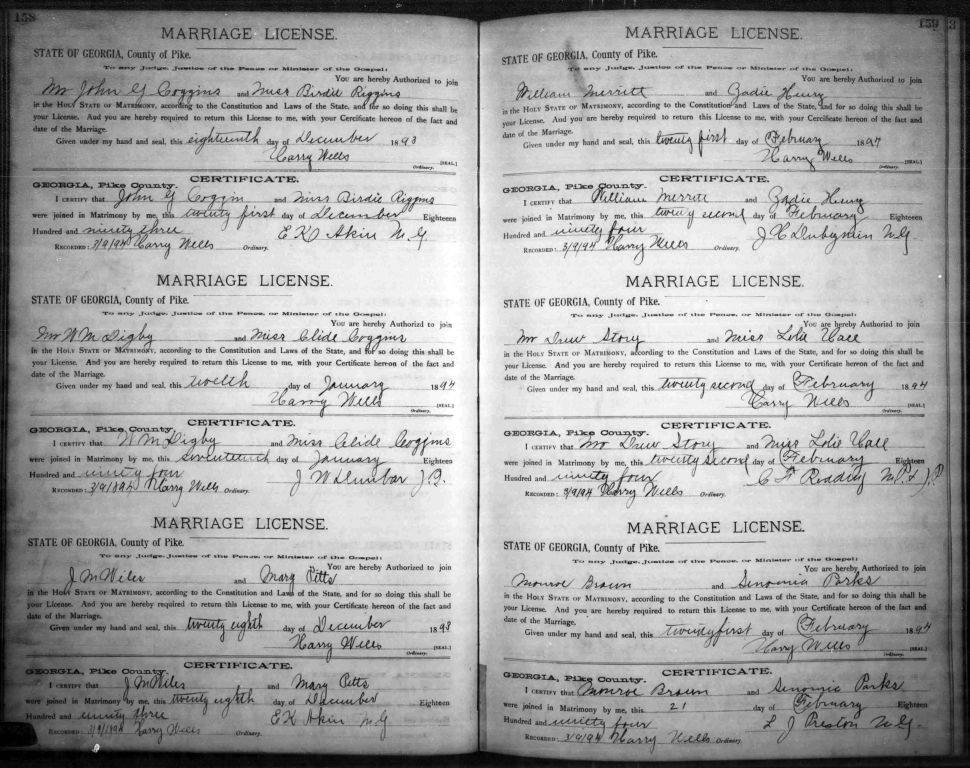 158
MARRIAGE LICENSE.
STATE OF GEORGIA, County of Pike.
To any Judge, Justice of the Peace, or Minister of the Gospel:
You are hereby Authorized to join
Mr John G Coggins and Miss Birdie Riggins
in the HOLY STATE OF MATRIMONY, according to the Constitution and Laws of the State, and for so doing this shall be
your License. And you are hereby required to return this License to me, with your Certificate hereon of the fact and
date of the Marriage.
Given under my hand and seal, this eighteenth day of December 1893
Harry Wells [SEAL.]
Ordinary.
CERTIFICATE.
GEORGIA, Pike County.
I CERTIFY that John G Coggin and Miss Birdie Riggins
were joined in Matrimony by me, this twenty first day of December Eighteen
Hundred and ninety three E K Akin M.G
RECORDED: 3/9/94 Harry Wells Ordinary.
MARRIAGE LICENSE.
STATE OF GEORGIA, County of Pike.
To any Judge, Justice of the Peace, or Minister of the Gospel:
You are hereby Authorized to join
Mr W M Digby and Miss Clide Coggins
in the HOLY STATE OF MATRIMONY, according to the Constitution and Laws of the State, and for so doing this shall be
your License. And you are hereby required to return this License to me, with your Certificate hereon of the fact and
date of the Marriage.
Given under my hand and seal, this twelth day of January 1894
Harry Wells [SEAL.]
Ordinary.
CERTIFICATE.
GEORGIA, Pike County.
I CERTIFY that W M Digby and Miss Clide Coggins
were joined in Matrimony by me, this day of January Eighteen
Hundred and ninety four J W Dunbar J.P.
RECORDED: 3/9/1894 Harry Wells Ordinary.
MARRIAGE LICENSE.
STATE OF GEORGIA, County of Pike.
To any Judge, Justice of the Peace, or Minister of the Gospel:
You are hereby Authorized to join
J M Wiles and Mary Pitts
in the HOLY STATE OF MATRIMONY, according to the Constitution and Laws of the State, and for so doing this shall be
your License. And you are hereby required to return this License to me, with your Certificate hereon of the fact and
date of the Marriage.
Given under my hand and seal, this twenty eighth day of December 1893
Harry Wells [SEAL.]
Ordinary.
CERTIFICATE.
GEORGIA, Pike County.
I CERTIFY that J M Wiles and Mary Pitts
were joined in Matrimony by me, this twenty eighth day of December Eighteen
Hundred and ninety three E K Akin M.G
RECORDED: 3/9/1894 Harry Wells Ordinary.
159 3
MARRIAGE LICENSE.
STATE OF GEORGIA, County of Pike.
To any Judge, Justice of the Peace, or Minister of the Gospel:
You are hereby Authorized to join
William Merritt and Zadie Henry
in the HOLY STATE OF MATRIMONY, according to the Constitution and Laws of the State, and for so doing this shall be
your License. And you are hereby required to return this License to me, with your Certificate hereon of the fact and
date of the Marriage.
Given under my hand and seal, this twenty first day of February 1894
Harry Wells [SEAL.]
Ordinary.
CERTIFICATE.
GEORGIA, Pike County.
I CERTIFY that William Merritt and Zadie Henry
were joined in Matrimony by me, this twenty second day of February Eighteen
Hundred and ninety four M.G.
RECORDED: 3/9/94 Harry Wells Ordinary.
MARRIAGE LICENSE.
STATE OF GEORGIA, County of Pike.
To any Judge, Justice of the Peace, or Minister of the Gospel:
You are hereby Authorized to join
Mr Drew Story and Miss Lola Hall
in the HOLY STATE OF MATRIMONY, according to the Constitution and Laws of the State, and for so doing this shall be
your License. And you are hereby required to return this License to me, with your Certificate hereon of the fact and
date of the Marriage.
Given under my hand and seal, this twenty second day of February 1894
Harry Wells [SEAL.]
Ordinary.
CERTIFICATE.
GEORGIA, Pike County.
I CERTIFY that Mr Drew Story and Miss Hall
were joined in Matrimony by me, this twenty second day of February Eighteen
Hundred and ninety four
RECORDED: 3/9/94 Harry Wells Ordinary.
MARRIAGE LICENSE.
STATE OF GEORGIA, County of Pike.
To any Judge, Justice of the Peace, or Minister of the Gospel:
You are hereby Authorized to join
Monroe Brown and Senomia Parks
in the HOLY STATE OF MATRIMONY, according to the Constitution and Laws of the State, and for so doing this shall be
your License. And you are hereby required to return this License to me, with your Certificate hereon of the fact and
date of the Marriage.
Given under my hand and seal, this twenty first day of February 1894
Harry Wells [SEAL.]
Ordinary.
CERTIFICATE.
GEORGIA, Pike County.
I CERTIFY that Monroe Brown and Senomia Parks
were joined in Matrimony by me, this 21 day of February Eighteen
Hundred and ninety four L J Preston M.G.
RECORDED: 3/9/94 Harry Wells Ordinary.